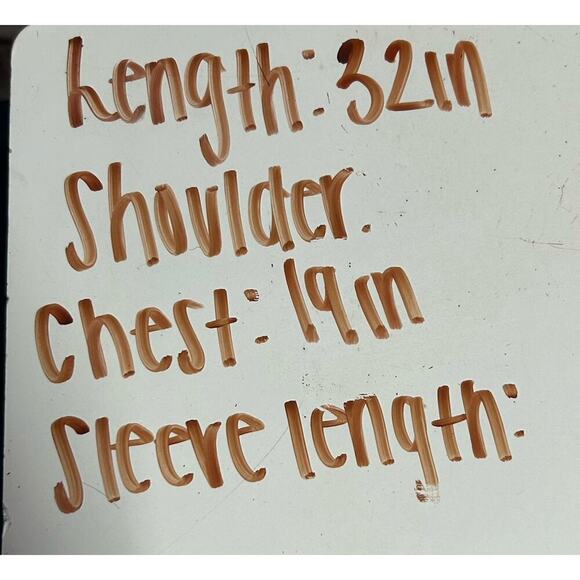 Length: 32in
Shoulder.
Chest: 19in
Sleeve length: